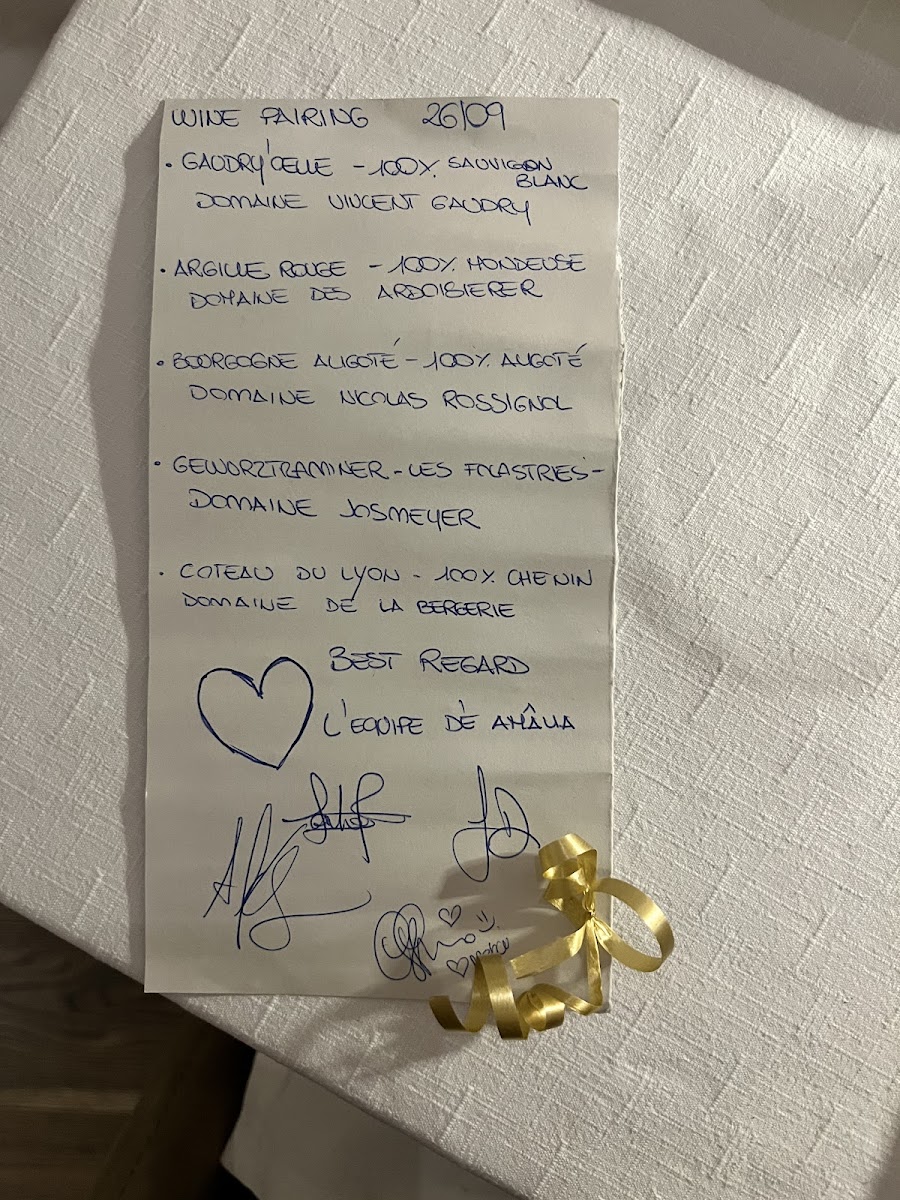 WINE PAIRING 26/09
• GAUDRY'CELLE - 100% SAUVIGON
BLANC
DOMAINE VINCENT GAUDRY
• ARGILLE ROUGE - 100% MONDEUSE
DOMAINE DES ARDOISIERER
• BOURGOGNE ALIGOTÉ - 100% ALIGOTÉ
DOMAINE NICOLAS ROSSIGNOL
• GEWURZTRAMINER - LES FOLASTRIES -
DOMAINE JOSMEYER
• COTEAU DU LYON - 100% CHENIN
DOMAINE DE LA BERGERIE
BEST REGARD
L'EQUIPE DE AMÂLIA